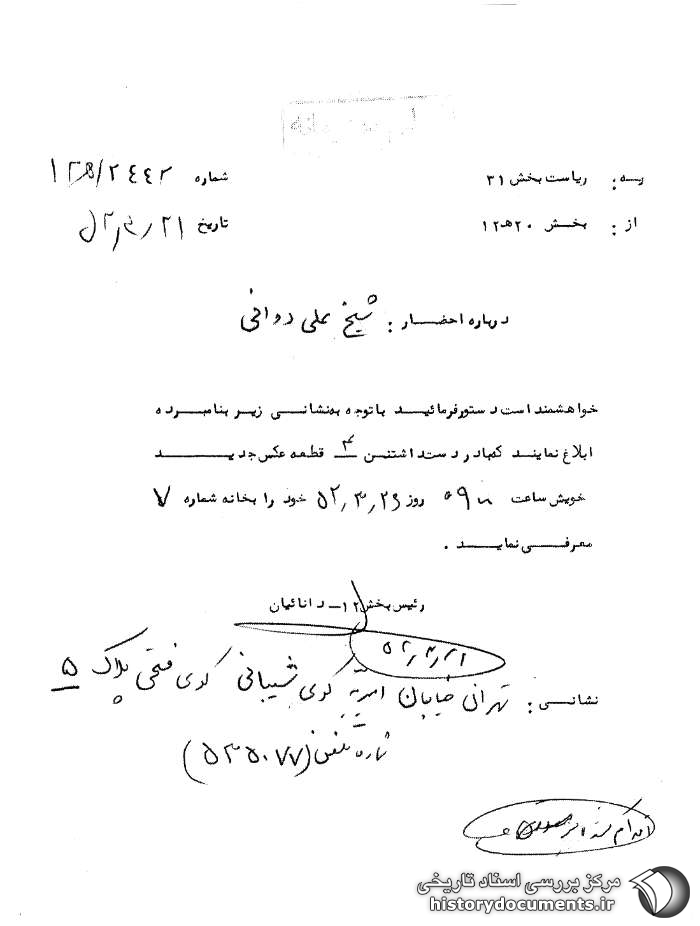 به: ریاست بخش ۳۱ شماره ۱۲ﻫ/۲۴۴۲
از: بخش ۲۰ﻫ۱۲ تاریخ ۲۱/۳/۵۲
درباره احضار: شیخ علی دوانی
خواهشمند است دستور فرمائید با توجه به‌نشانی زیر بنامبرده
ابلاغ نمایند که‌با در دست داشتن ۴ قطعه عکس جدید
خویش ساعت روز ۵۲/۳/۲۶ خود را بخانه شماره ۷
معرفی نماید.
رئیس بخش ۱۲ – دانائیان
۵۲/۳/۲۱
نشانی: تهران خیابان امیریه کوی شیبانی کوی فتحی پلاک ۵
شماره تلفن (۵۳۵۰۷۷)
اقدام شد
مرکز بررسی اسناد تاریخی
historydocuments.ir